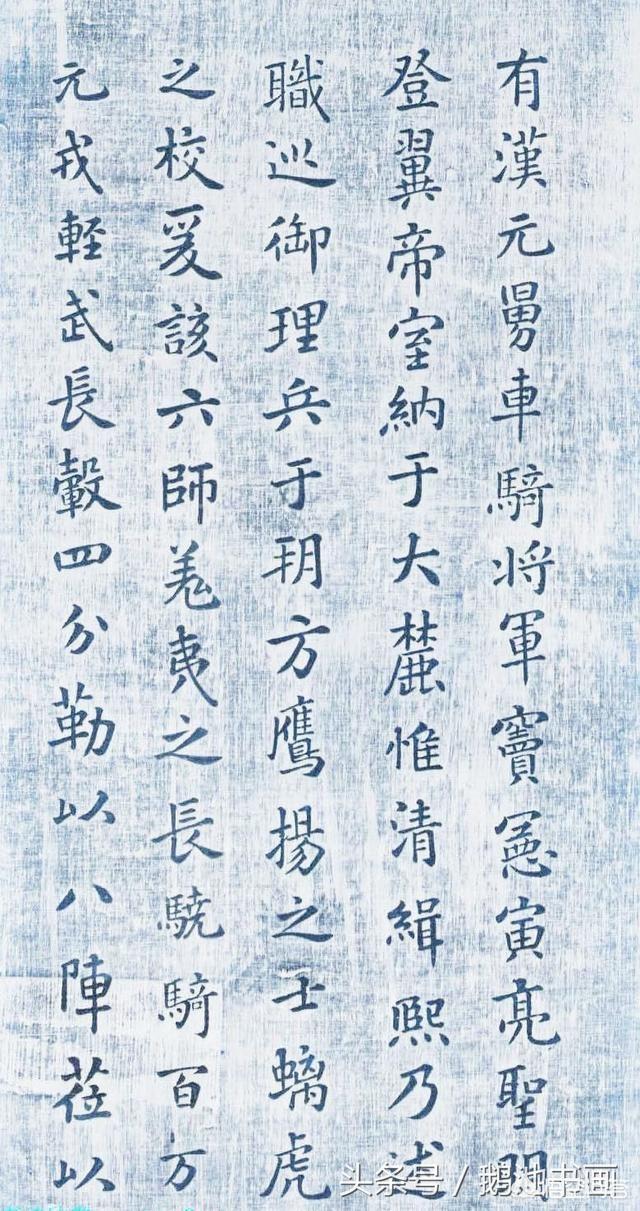 有漢元舅車騎将軍竇憲寅亮聖明
登翼帝室納于大麓惟清緝熙乃述
職巡御理兵于朔方鷹揚之士螭虎
之校爰該六師羌夷之長驍騎百万
元戎輕武長轂四分勒以八陣莅以
头条号／鹅湖书画